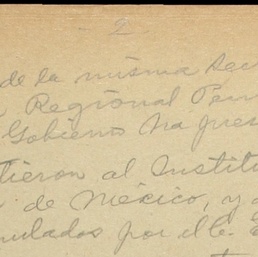 2
de la misma Sec
Regional Pen
Gobierno ha pres
tieron al Institu
de México, y a
mulados por ella. E